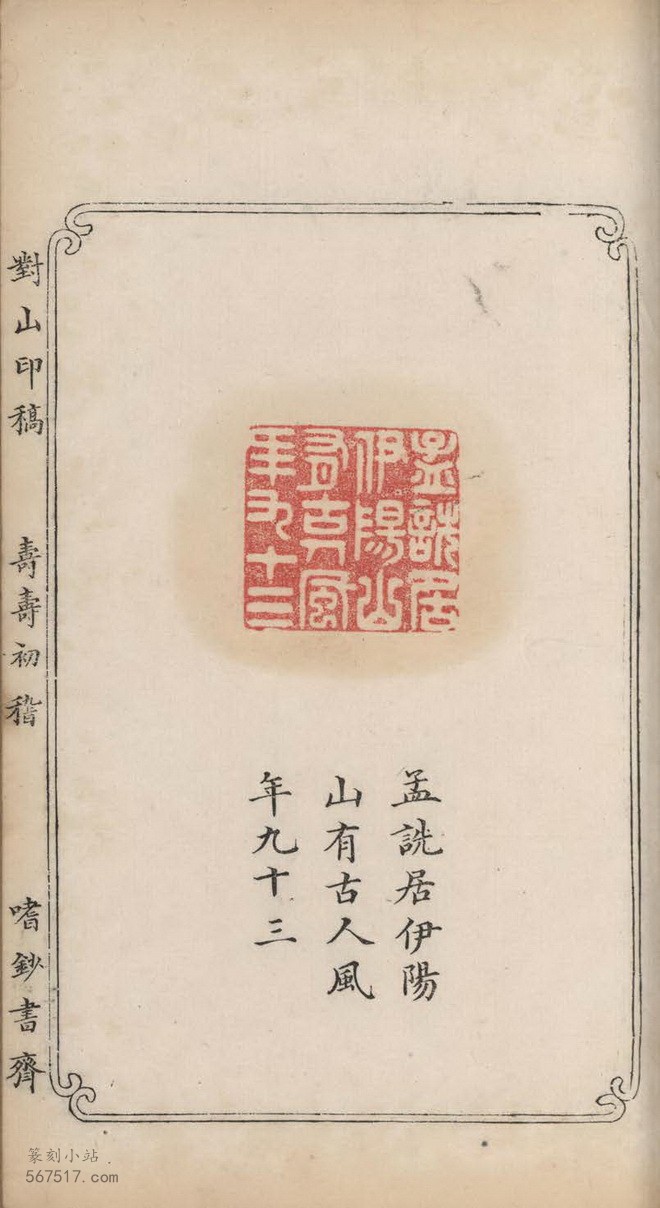 孟詵居
伊陽山
有古人風
年九十三
孟詵居伊陽
山有古人風
年九十三
對山印稿
壽壽初稽
嗜鈔書齋
篆刻小站
567517.com